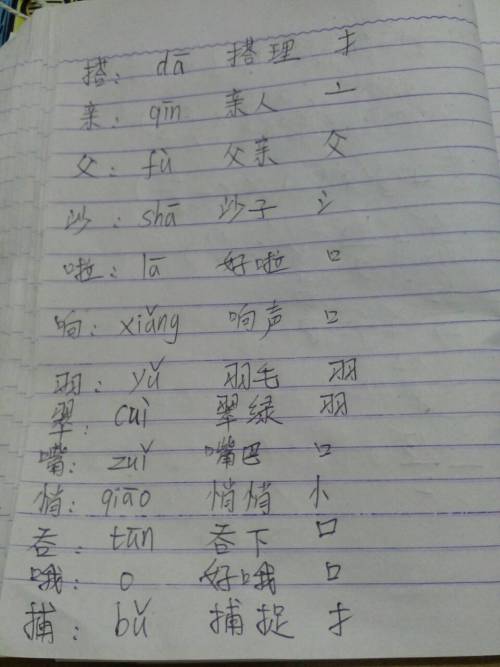 搭: dā 搭理 扌
亲: qīn 亲人 亠
父: fù 父亲 父
沙: shā 沙子 氵
啦: lā 好啦 口
响: xiǎng 响声 口
羽: yǔ 羽毛 羽
翠: cuì 翠绿 羽
嘴: zuǐ 嘴巴 口
悄: qiāo 悄悄 忄
吞: tūn 吞下 口
哦: o 好哦 口
捕: bǔ 捕捉 扌